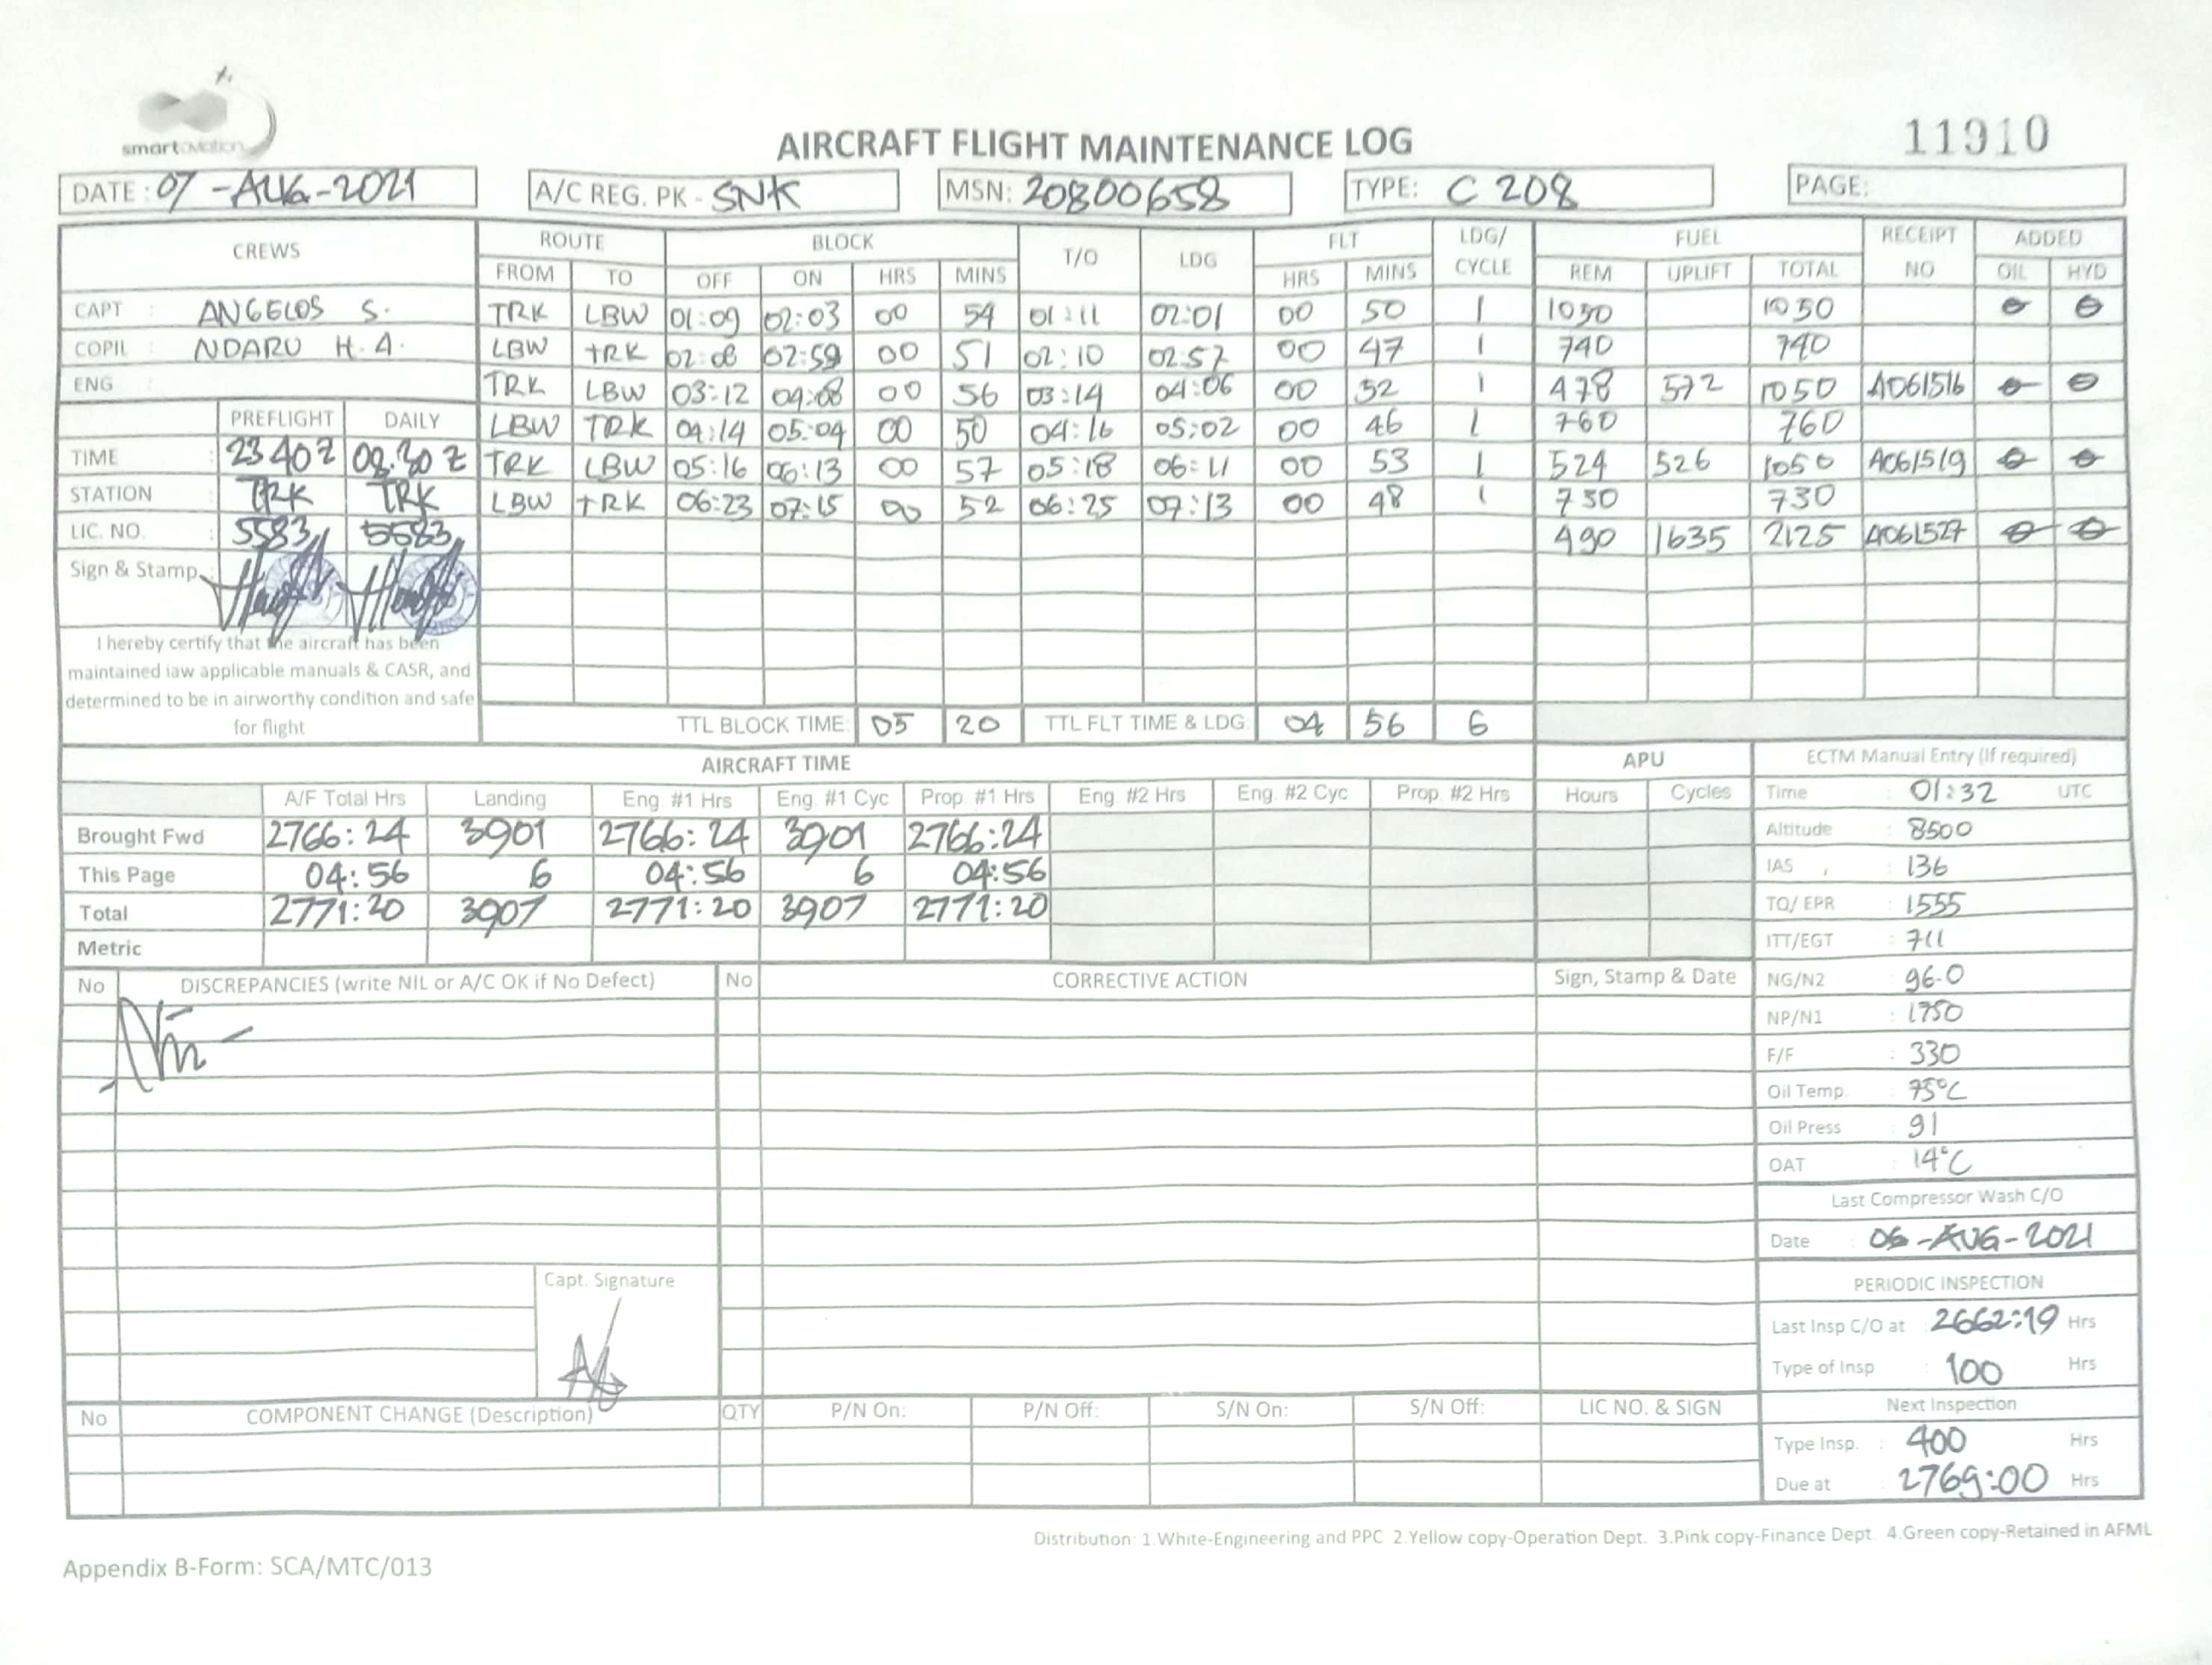 smartaviation
AIRCRAFT FLIGHT MAINTENANCE LOG
11910
DATE : 07 -AUG-2021 A/C REG. PK - SNK MSN: 20800658 TYPE: C 208 PAGE:
CREWS ROUTE BLOCK T/O LDG FLT LDG/ CYCLE FUEL RECEIPT NO ADDED
FROM TO OFF ON HRS MINS HRS MINS REM UPLIFT TOTAL OIL HYD
CAPT : ANGELOS S. TRK LBW 01:09 02:03 00 54 01:11 02:01 00 50 1 1050 1050
COPIL : NDARU H.A. LBW TRK 02:08 02:59 00 51 02:10 02:57 00 47 1 740 740
ENG : TRK LBW 03:12 04:08 00 56 03:14 04:06 00 52 1 478 572 1050 A061516
PREFLIGHT DAILY LBW TRK 04:14 05:04 00 50 04:16 05:02 00 46 1 760 760
TIME : 2340Z 08.30Z TRK LBW 05:16 06:13 00 57 05:18 06:11 00 53 1 524 526 1050 A061519
STATION : TRK TRK LBW TRK 06:23 07:15 00 52 06:25 07:13 00 48 1 730 730
LIC. NO. : 5583 5583 490 1635 2125 A061527
Sign & Stamp
I hereby certify that the aircraft has been
maintained iaw applicable manuals & CASR, and
determined to be in airworthy condition and safe
for flight
TTL BLOCK TIME: 05 20 TTL FLT TIME & LDG: 04 56 6
AIRCRAFT TIME APU ECTM Manual Entry (If required)
A/F Total Hrs Landing Eng. #1 Hrs Eng. #1 Cyc Prop. #1 Hrs Eng. #2 Hrs Eng. #2 Cyc Prop. #2 Hrs Hours Cycles
Brought Fwd 2766:24 3901 2766:24 3901 2766:24
This Page 04:56 6 04:56 6 04:56
Total 2771:20 3907 2771:20 3907 2771:20
Metric
Time : 01:32 UTC
Altitude : 8500
IAS : 136
TO/ EPR : 1555
ITT/EGT : 711
NG/N2 : 96.0
NP/N1 : 1750
F/F : 330
Oil Temp. : 75°C
Oil Press : 91
OAT : 14°C
Last Compressor Wash C/O
Date : 06-AUG-2021
PERIODIC INSPECTION
Last Insp C/O at : 2662:19 Hrs
Type of Insp : 100 Hrs
Next Inspection
Type Insp. : 400 Hrs
Due at : 2769:00 Hrs
No DISCREPANCIES (write NIL or A/C OK if No Defect) No CORRECTIVE ACTION Sign, Stamp & Date
Nil -
Capt. Signature
No COMPONENT CHANGE (Description) QTY P/N On: P/N Off: S/N On: S/N Off: LIC NO. & SIGN
Distribution: 1.White-Engineering and PPC 2.Yellow copy-Operation Dept. 3.Pink copy-Finance Dept. 4.Green copy-Retained in AFML
Appendix B-Form: SCA/MTC/013